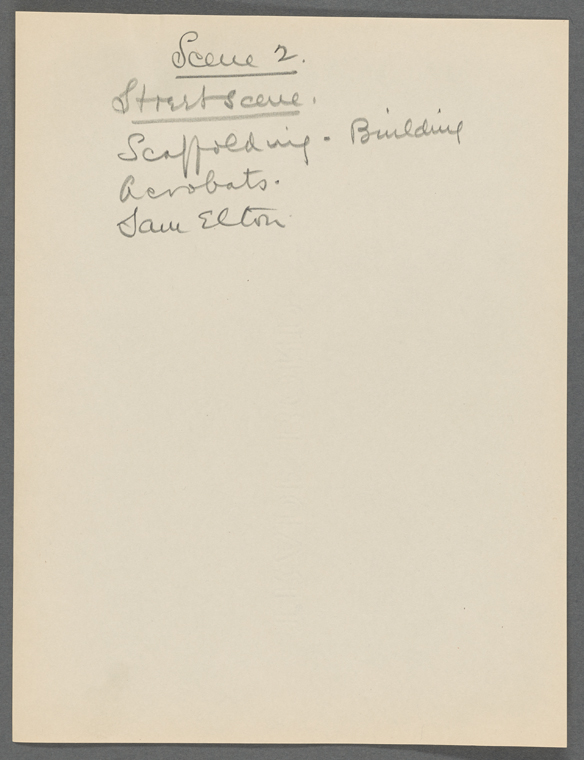 Scene 2.
Street scene.
Scaffolding - Building
Acrobats.
Sam Elton